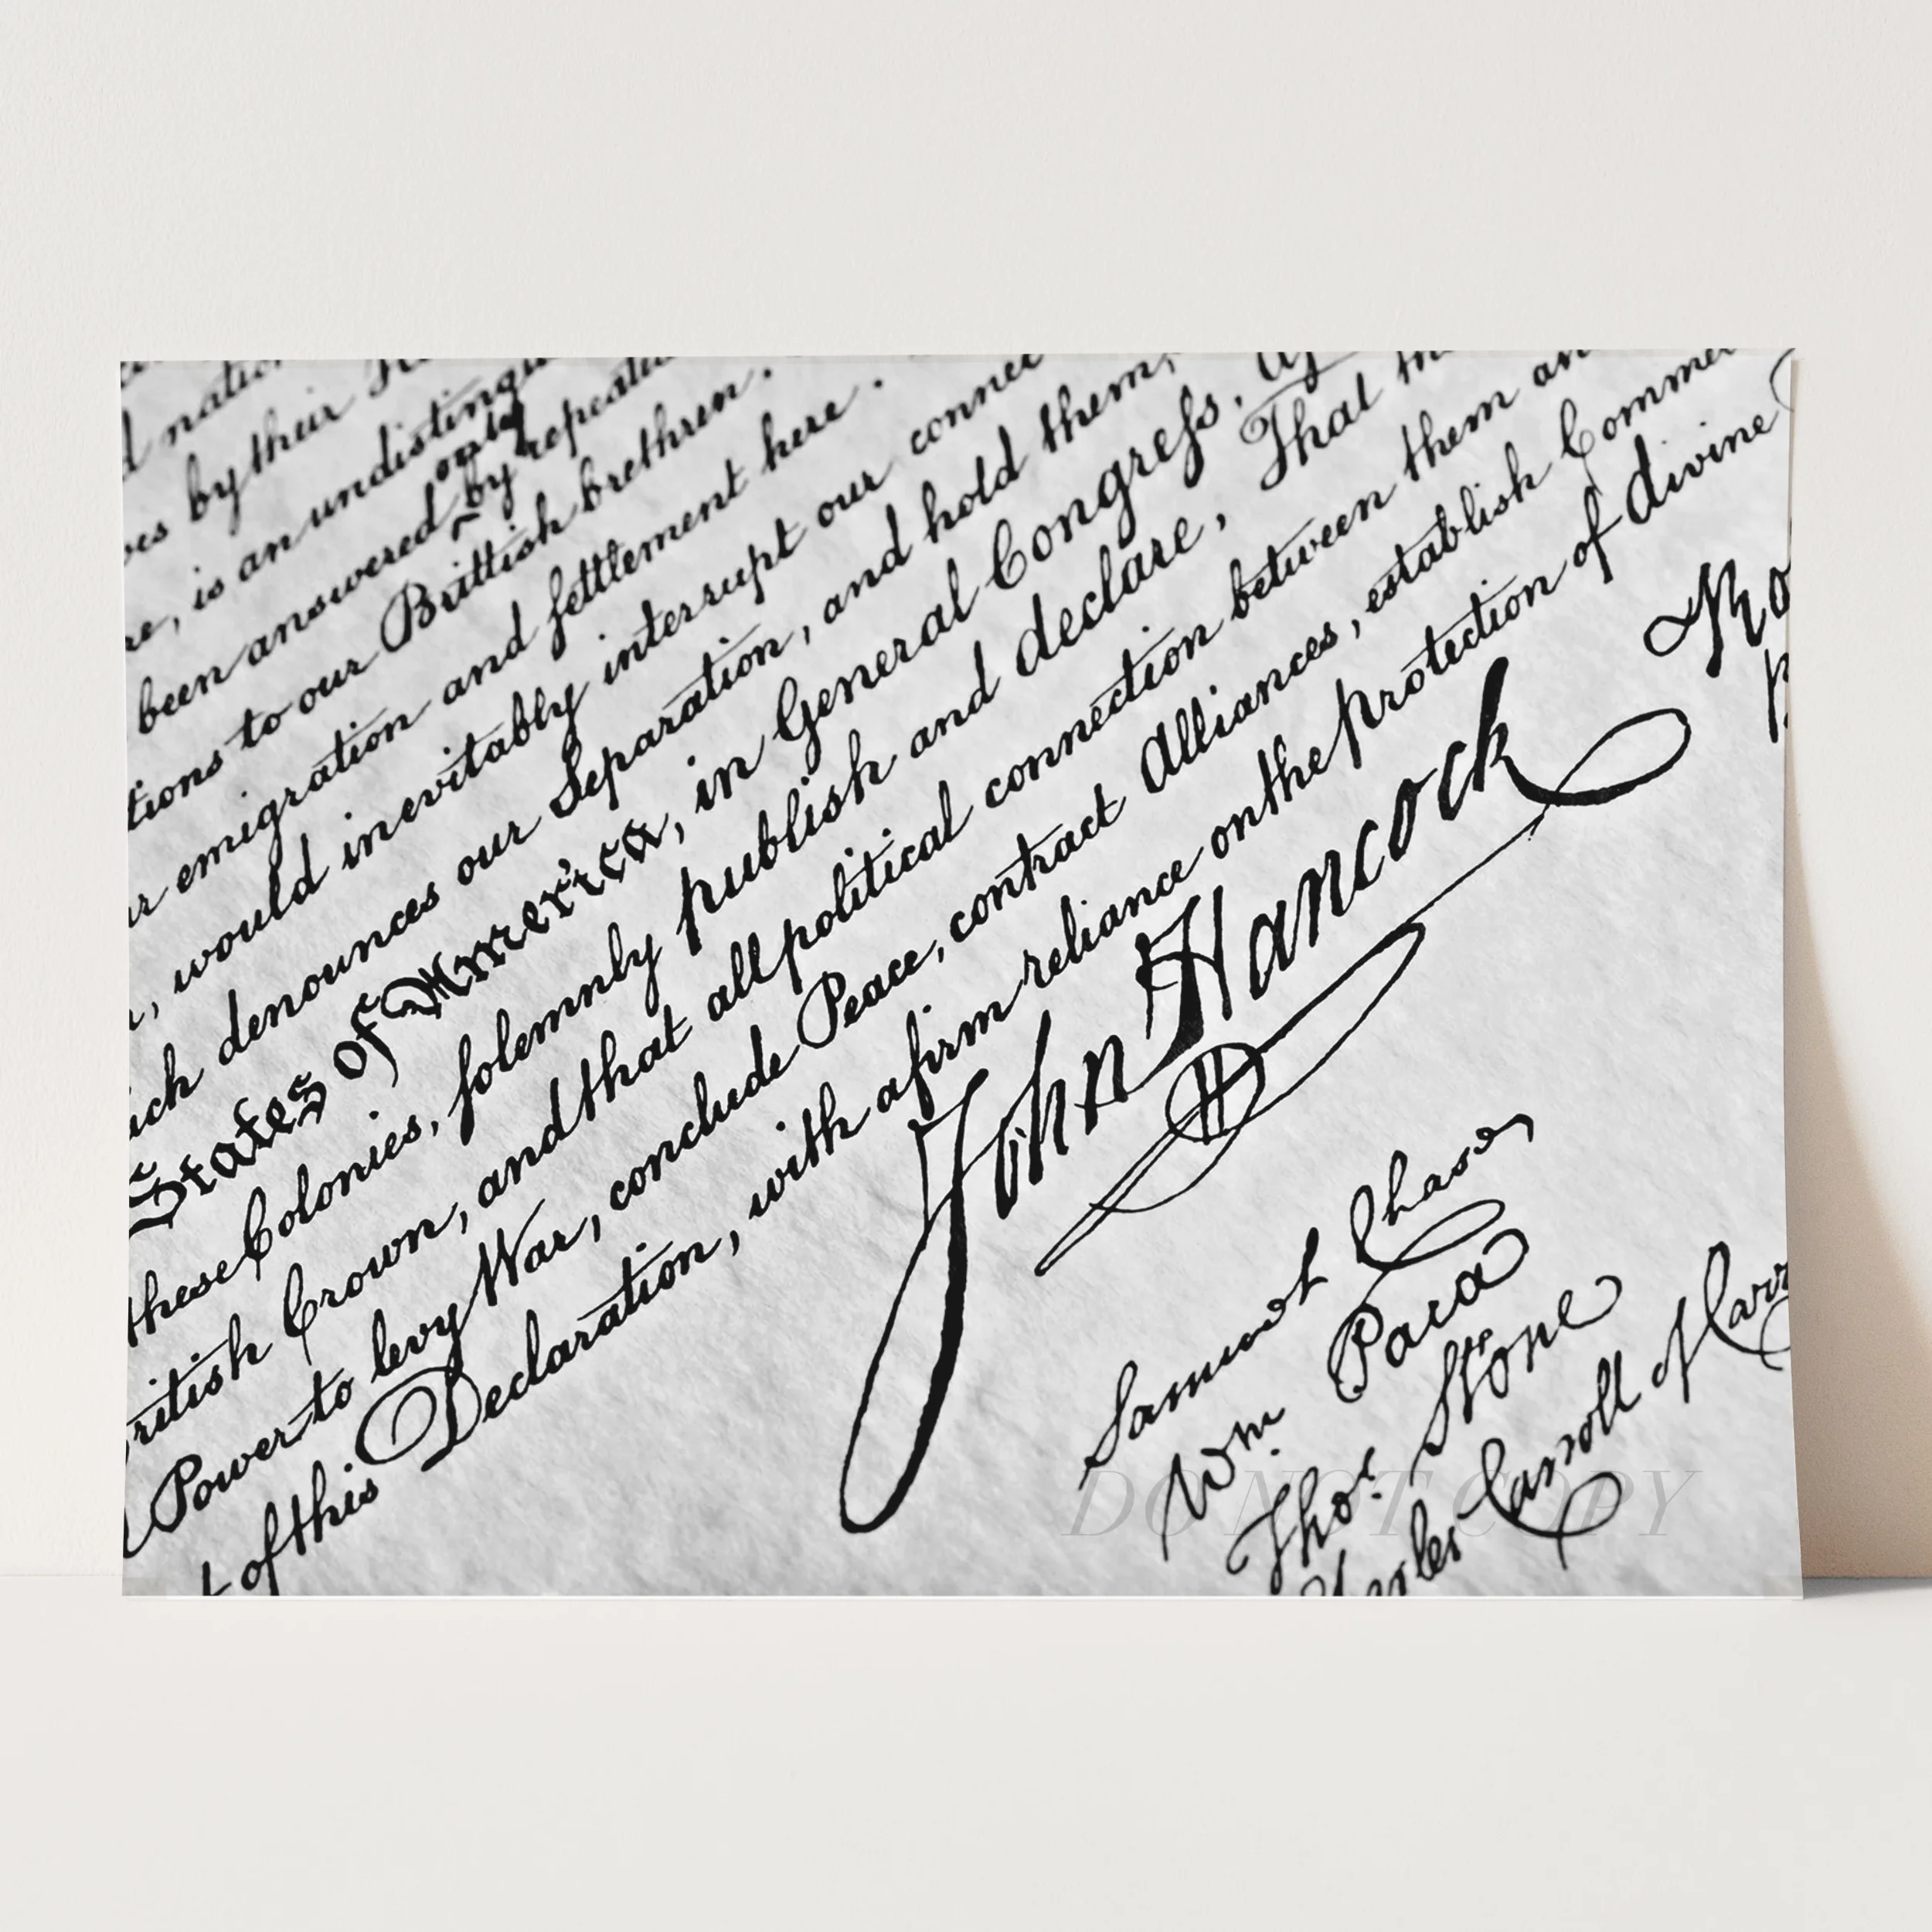 natio
es by their
re, is an undistingu
been answered only by repeated
tions to our Brittish brethren.
r emigration and settlement here.
, would inevitably interrupt our connec
ich denounces our Separation, and hold them,
States of America, in General Congress,
these Colonies, solemnly publish and declare, That th
ritish Crown, and that all political connection between them an
Power to levy War, conclude Peace, contract Alliances, establish Commer
t of this Declaration, with a firm reliance on the protection of divine
John Hancock
Ro
Samuel Chase
Wm. Paca
Thos. Stone
Charles Carroll of Carr
DO NOT COPY